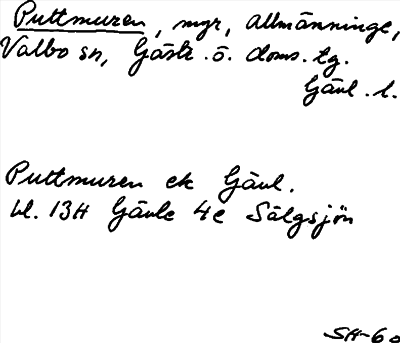 Puttmuren, myr, allmänninge,
Valbo sn, Gästr. ö. doms. tg.
Gävl. l.
Puttmuren ek Gävl.
bl. 13H Gävle 4e Sälgsjön
SH-60